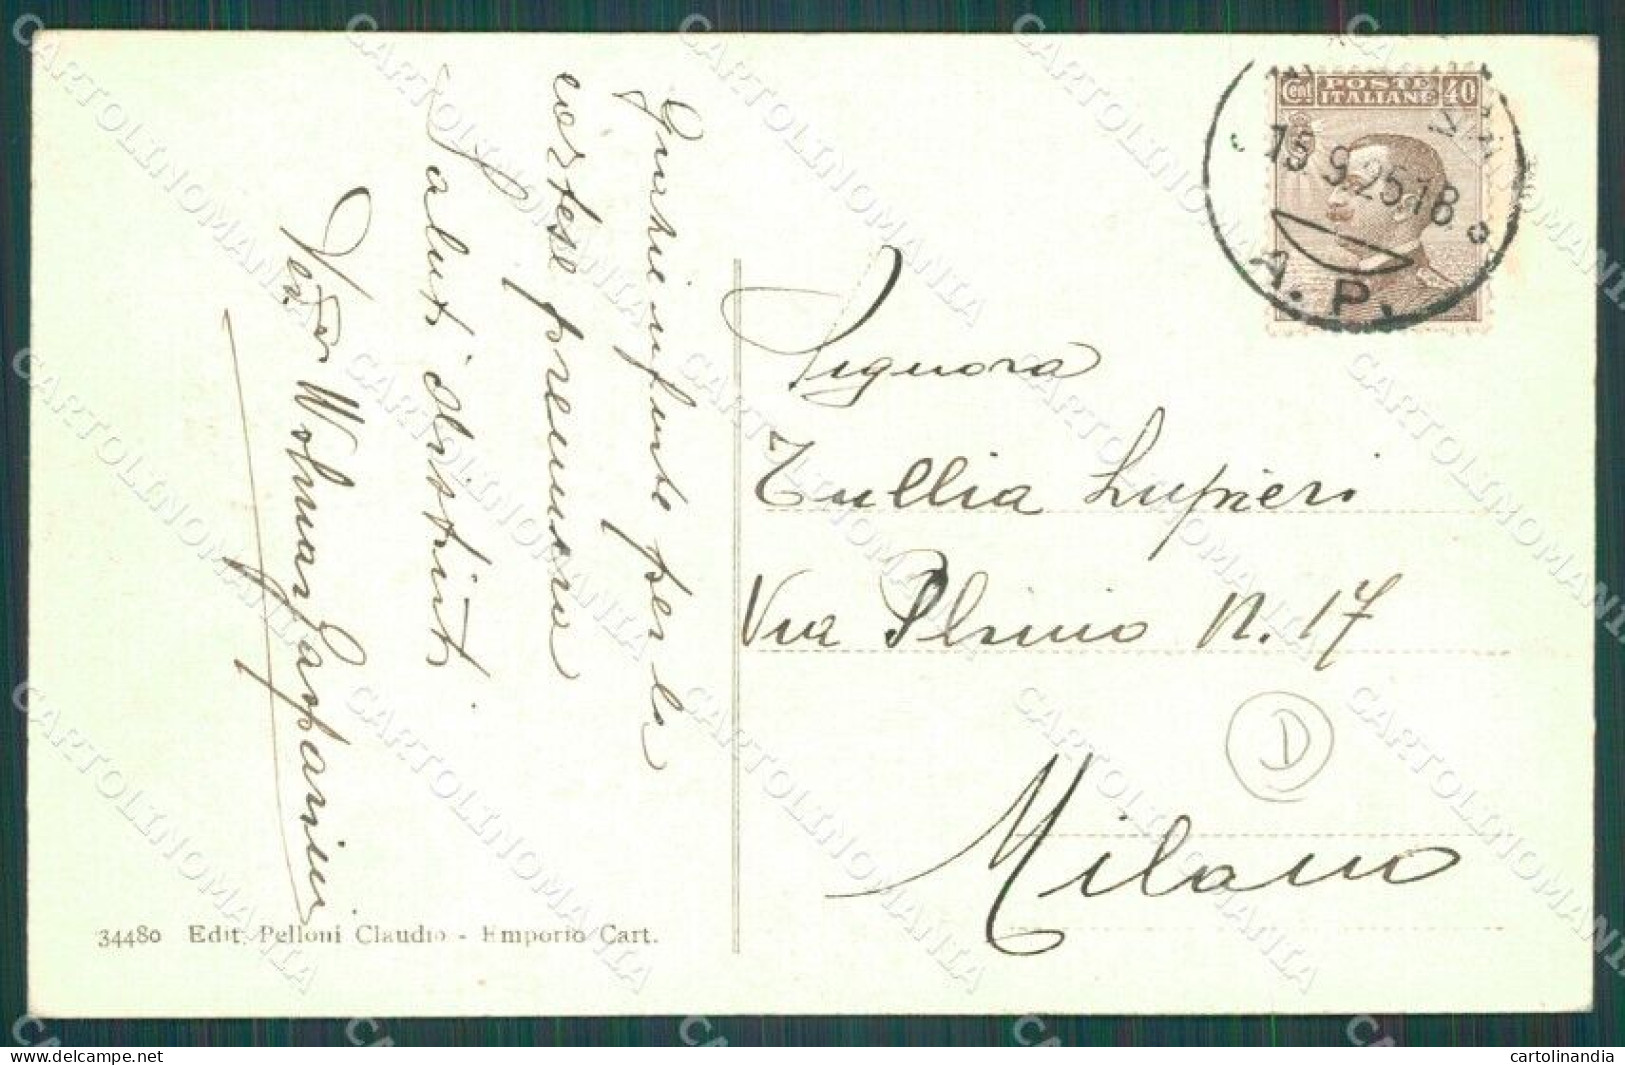 Grazie infinite per la
cortese premura
Saluti distinti
Wolmar Gasparini
34480 Edit. Pelloni Claudio - Emporio Cart.
Cent. POSTE ITALIANE 40
13.9.25.18
A. P.
Signora
Tullia Lupieri
Via Plinio N. 17
Milano
D
CARTOLINOMANIA
cartolinandia